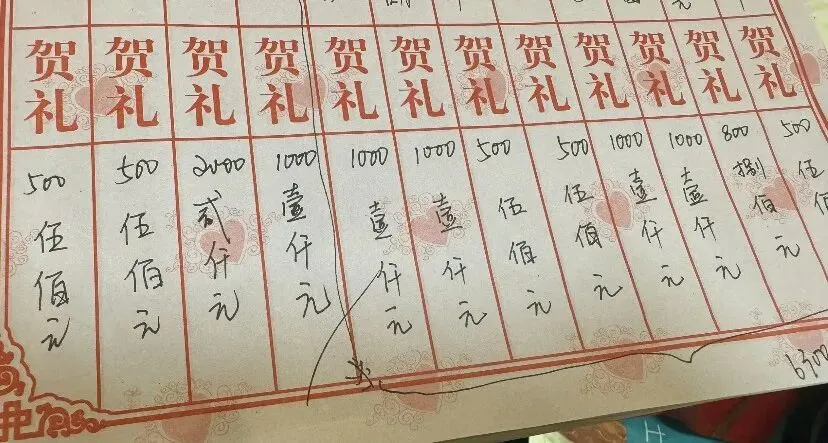 贺礼 贺礼 贺礼 贺礼 贺礼 贺礼 贺礼 贺礼 贺礼 贺礼 贺礼
500 500 2000 1000 1000 1000 500 500 1000 1000 800 500
伍佰元 伍佰元 贰仟元 壹仟元 壹仟元 壹仟元 伍佰元 伍佰元 壹仟元 壹仟元 捌佰元 伍佰元
6300